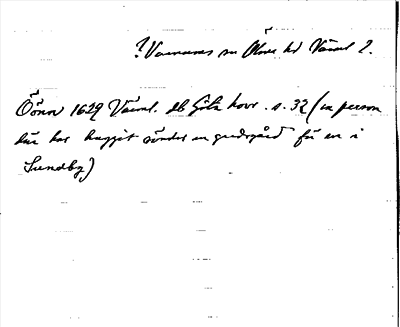 ? Varnums sn Ölme hd Värml 2.
Öön 1629 Värml. db Göta hovr. s. 32 (en person
där har huggit sönder en gärdsgård för en i
Sundby)